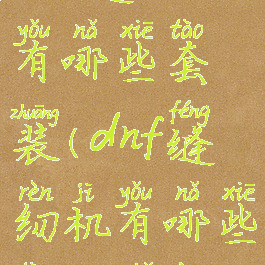 yǒu nǎ xiē tào
有哪些套
zhuāng féng
装(dnf缝
rèn jī yǒu nǎ xiē
纫机有哪些